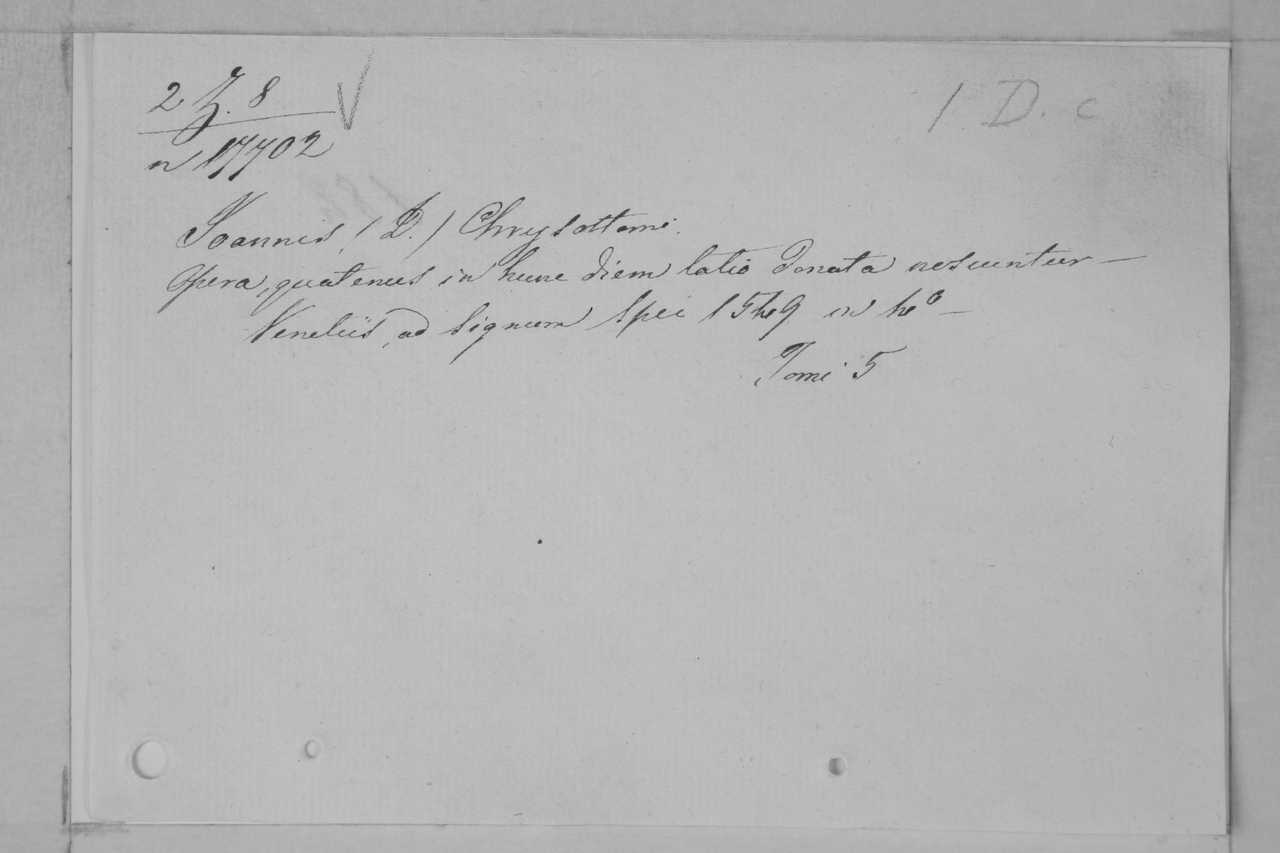 2 Z. 8
1 D. c
n 17702
Joannis (D.) Chrysostomi.
Opera, quatenus in hunc diem latio donata nescuntur —
Venetiis, ad signum Spei 1549 in 4º —
Tomi 5